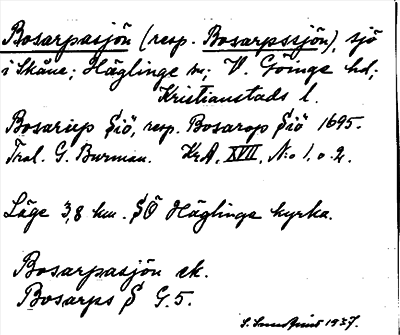 Bosarpasjön (resp. Bosarpssjön), sjö
i Skåne; Häglinge sn; V. Göinge hd;
Kristianstads l.
Bosariep Siö, resp. Bosarop Siö 1695.
Tral. G. Burman. KrA, XVII, N:o 1, o. 2.
Läge 3,8 km. SÖ Häglinge kyrka.
Bosarpasjön ek.
Bosarps S G.5.
1927.